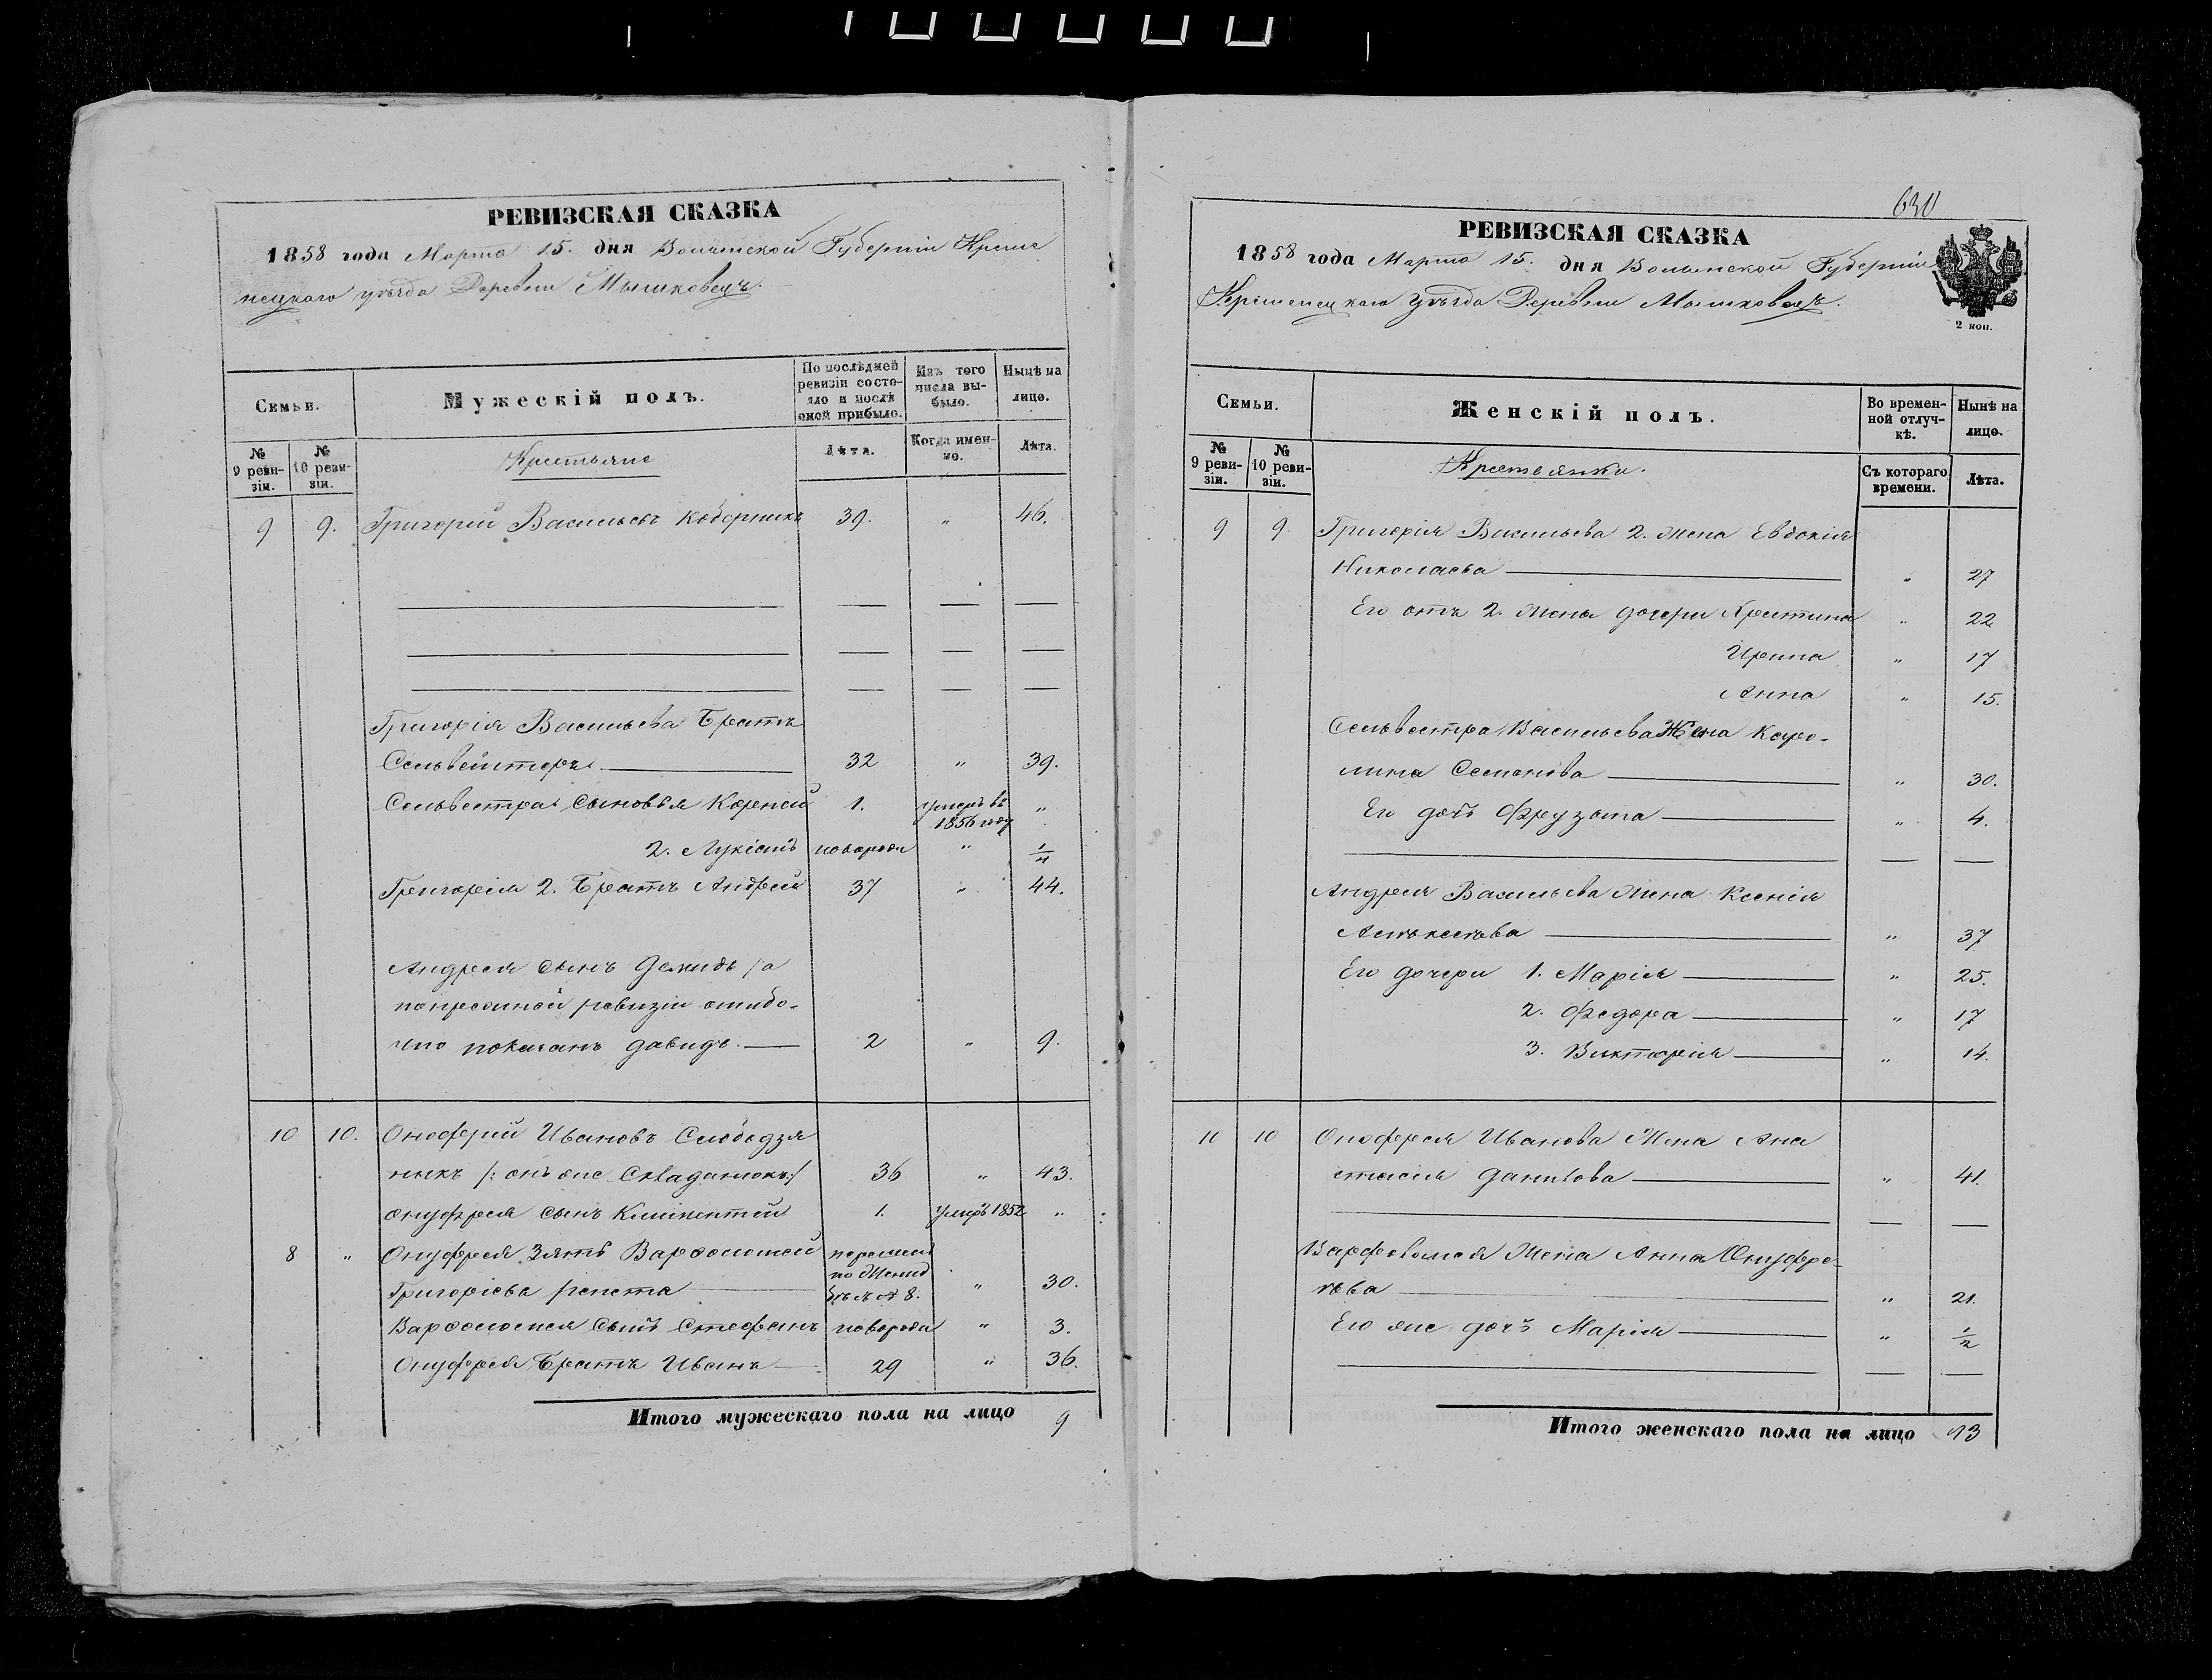 РЕВИЗСКАЯ СКАЗКА
1858 года Марта 15. дня Волынской Губерніи Креме
нецкаго уѣзда Деревни Мышковецъ.
Семьи.
Мужескій полъ.
По послѣдней ревизіи состояло и послѣ оной прибыло.
Изъ того числа выбыло.
Нынѣ на лицо.
№ 9 ревизіи.
№ 10 ревизіи.
Крестьяне
Лѣта.
Когда именно.
Лѣта.
9 9. Григорій Васильевъ Коберникъ 39. " 46.
Григорія Васильева Братъ
Сельвестеръ 32 " 39.
Сельвестра Сыновья Корнѣй 1. умеръ въ 1856 году "
2. Лукіанъ новорож "
Григорія 2. Братъ Андрей 37 " 44.
Андрея сынъ Демидъ /а
попрежной ревизіи ошибо-
чно показанъ Давидъ. 2 " 9.
10 10. Оноферій Ивановъ Слободзя
никъ /: онъ же Сваданюкъ:/ 36 " 43.
Онуфрея сынъ Климентій 1. умеръ 1852 "
8 " Онуфрея Зять Варфоломей
Григорьева Репета " 30.
Варфоломея Сынъ Стефанъ новорож " 3.
Онуфрея Братъ Иванъ 29 " 36.
Итого мужескаго пола на лицо 9
630
РЕВИЗСКАЯ СКАЗКА
1858 года Марта 15. дня Волынской Губерніи
Кременецкаго уѣзда Деревни Мышковецъ.
2 коп.
Семьи.
Женскій полъ.
Во временной отлучкѣ.
Нынѣ на лицо.
№ 9 ревизіи.
№ 10 ревизіи.
Крестьянки.
Съ котораго времени.
Лѣта.
9 9. Григорія Васильева 2. Жена Евдокія
Николаева " 27
Его отъ 2. Жены дочери Христина " 22
Ирина " 17
Анна " 15.
Сельвестра Васильева Жена Каро-
лина Семенова " 30.
Его дочь Фрузына " 4.
Андрея Васильева Жена Ксенія
Алексѣева " 37
Его дочери 1. Марія " 25.
2. Федора " 17
3. Викторія " 14.
10 10 Оноферея Иванова Жена Ана
стасія Данилова " 41.
Варфоломея Жена Анна Онуфре-
ѣва " 21.
Его же дочь Марія " 1/2
Итого женскаго пола на лицо 13